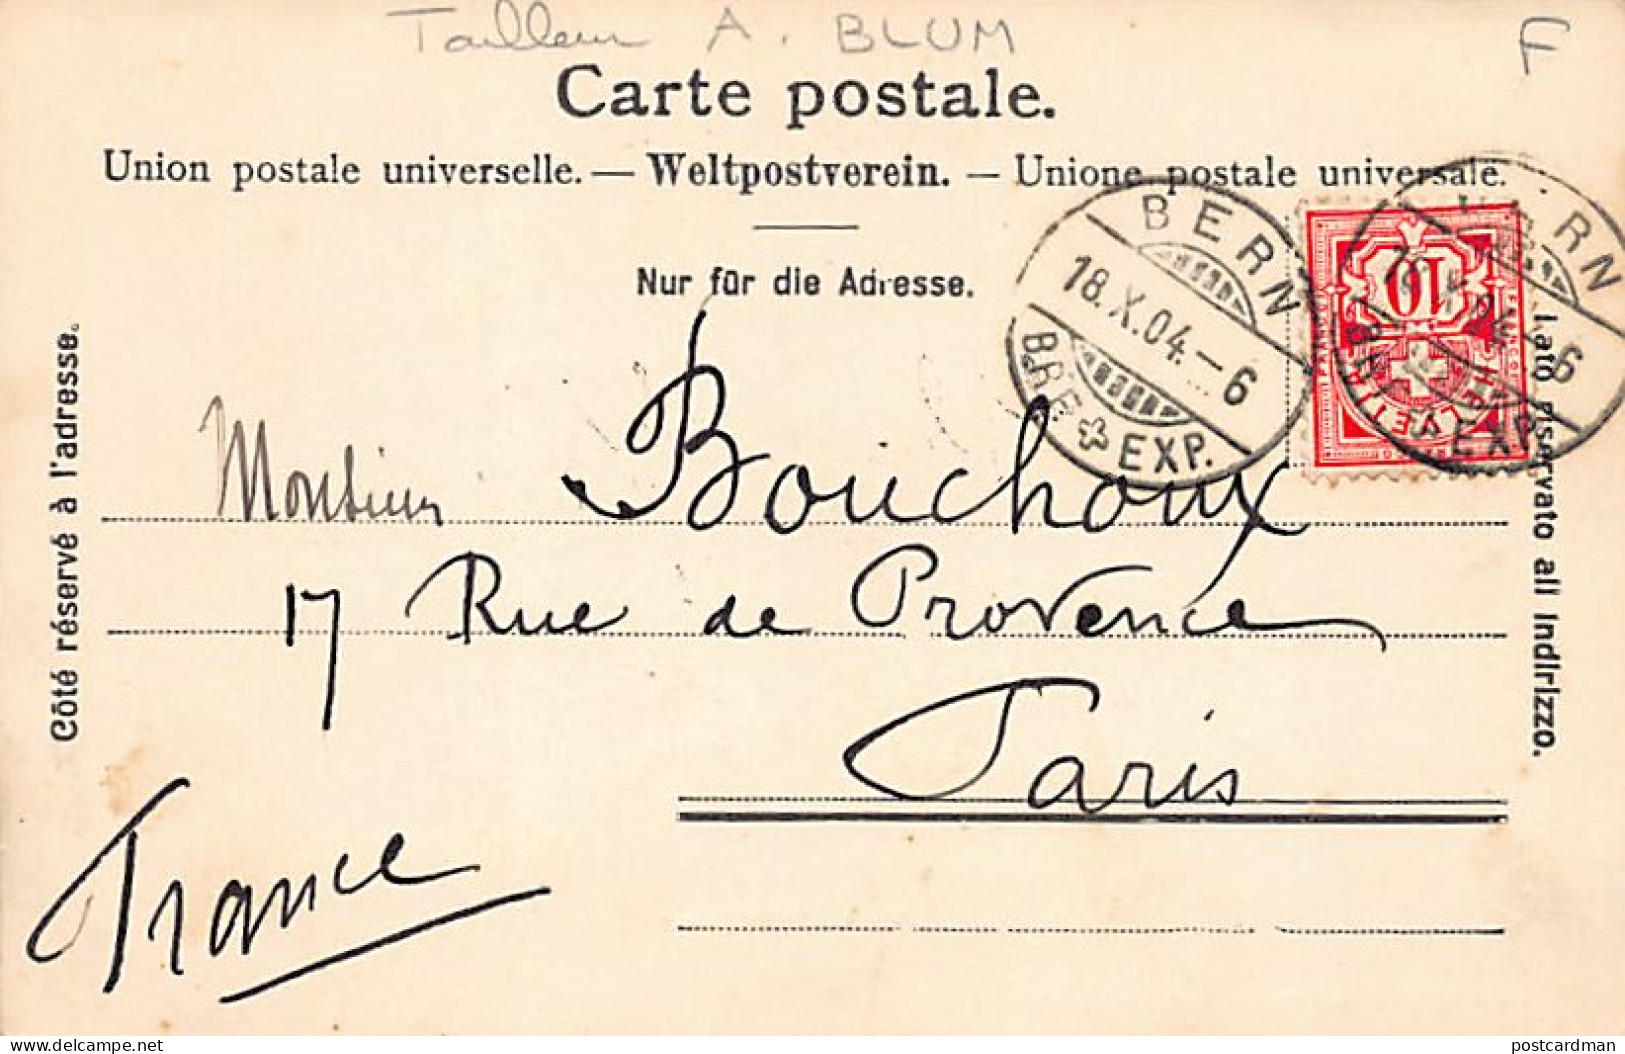 Tailleur A. BLUM
F
Carte postale.
Union postale universelle. — Weltpostverein. — Unione postale universale.
Nur für die Adresse.
BERN
18.X.04.–6
BRF. EXP.
BERN
10
FRANCO
HELVETIA
BRF. EXP.
Côté réservé à l'adresse.
Lato riservato all indirizzo.
Monsieur Bouchoux
17 Rue de Provence
Paris
France
www.delcampe.net
postcardman